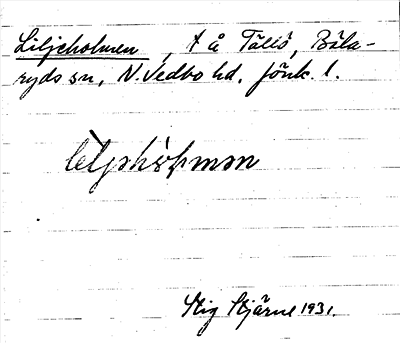 Liljeholmen, t å Tällö, Bäla-
ryds sn, N. Vedbo hd. Jönk. l.
Stig Stjärne 1931.